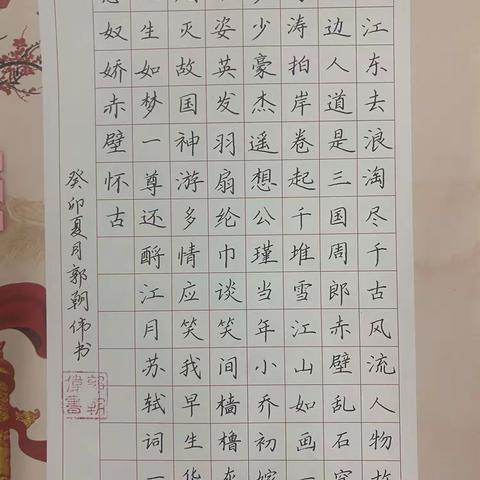 江东去浪淘尽千古风流人物故
边人道是三国周郎赤壁乱石穿
涛拍岸卷起千堆雪江山如画一
少豪杰遥想公瑾当年小乔初嫁
姿英发羽扇纶巾谈笑间樯橹灰
灭故国神游多情应笑我早生华
生如梦一尊还酹江月苏轼词一
奴娇赤壁怀古
癸卯夏月郭朝伟书
郭朝
偉書